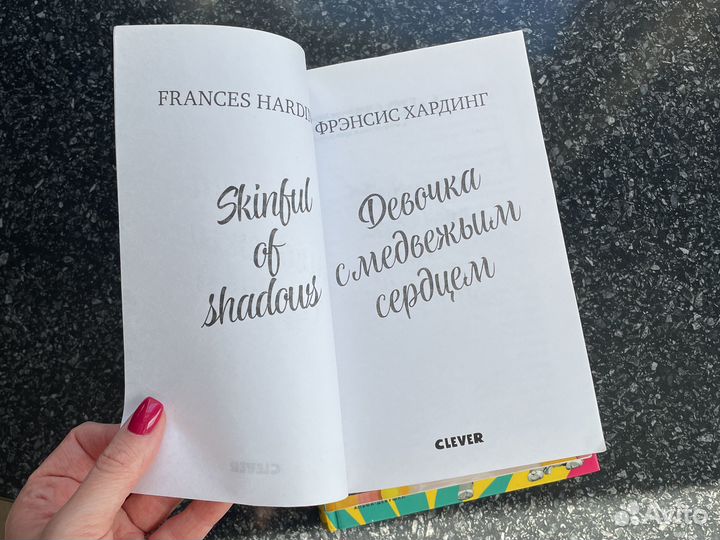 FRANCES HARDIN
Skinful
of
shadows
ФРЭНСИС ХАРДИНГ
Девочка
с медвежьим
сердцем
CLEVER
CLEVER
Avito